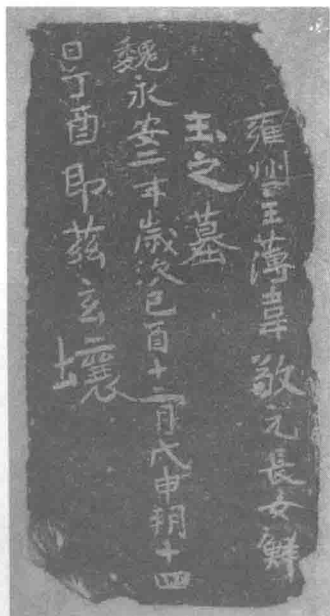 雍州主薄韋敬元長女鮮
玉之墓
魏永安二年歲次己酉十二月戊申朔十四
日辛酉即茲玄壤